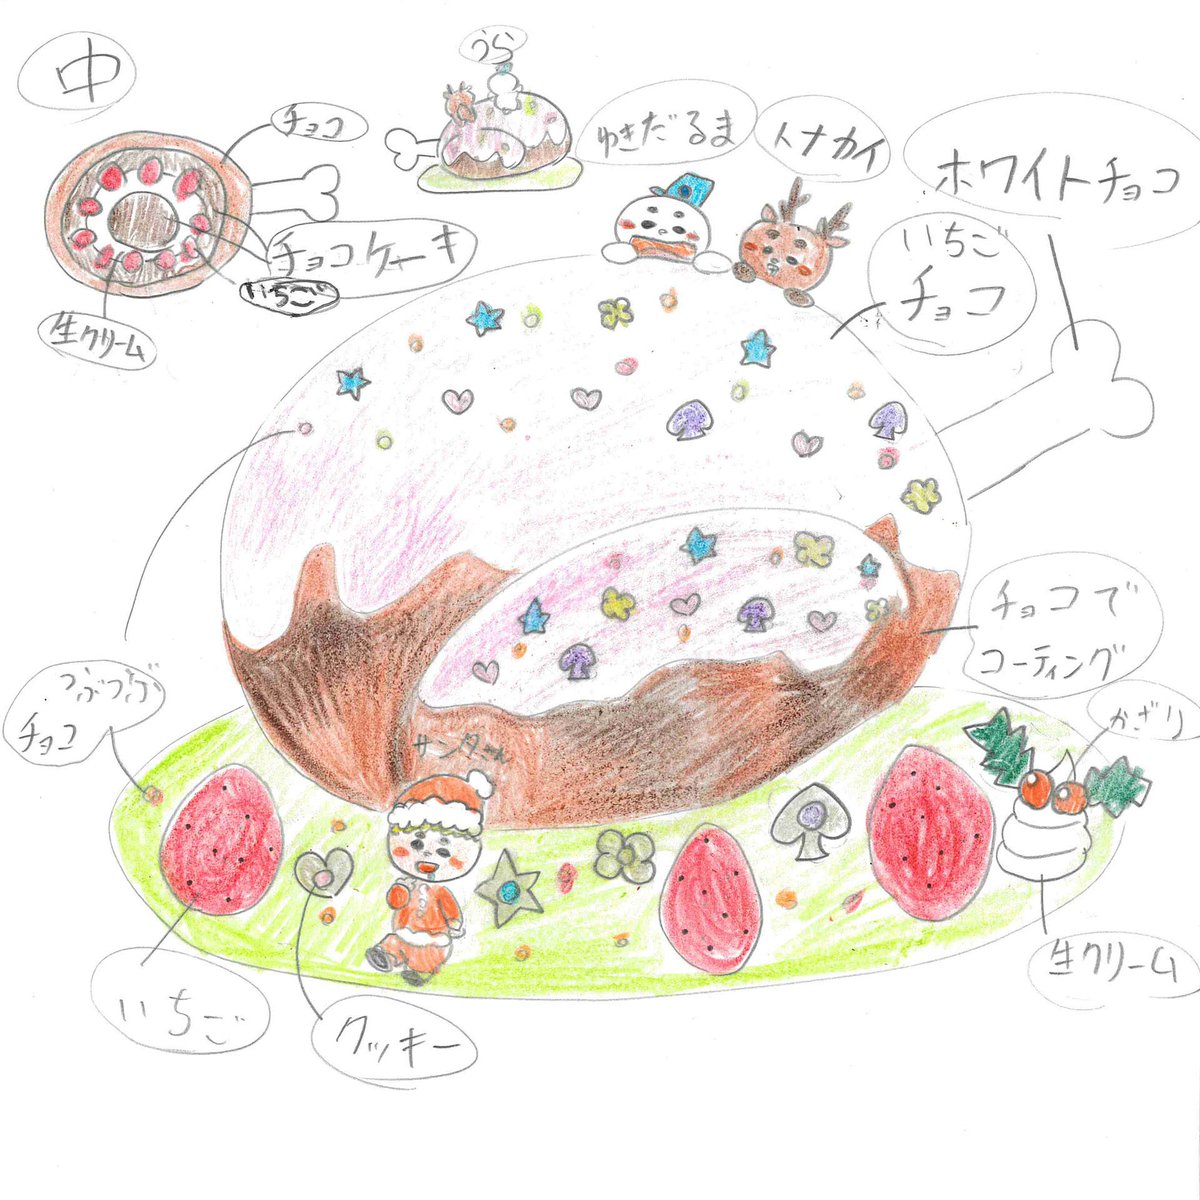 中
うら
チョコ
ゆきだるま
トナカイ
ホワイトチョコ
いちご
チョコ
チョコケーキ
いちご
生クリーム
チョコで
コーティング
つぶつぶ
チョコ
かざり
サンタさん
いちご
クッキー
生クリーム